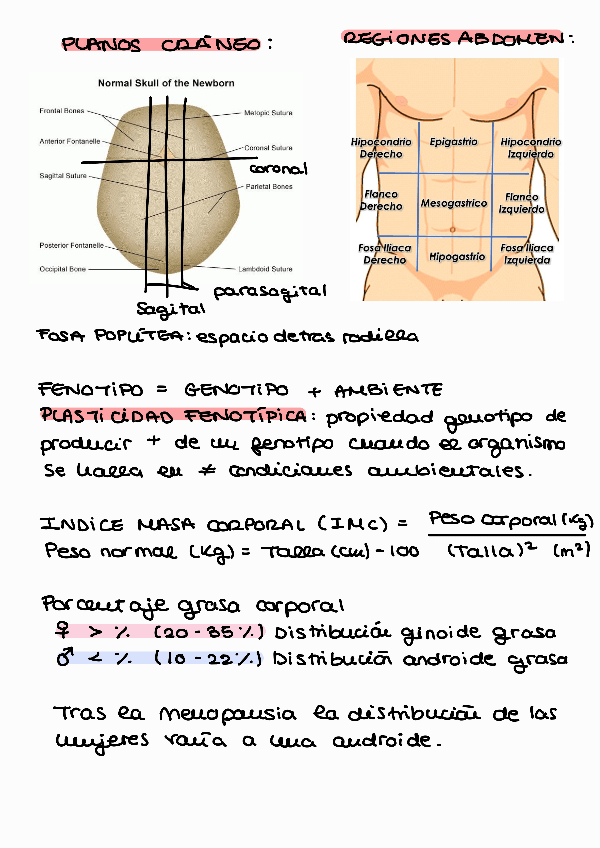 PLANOS CRÁNEO:
REGIONES ABDOMEN:
Normal Skull of the Newborn
Frontal Bones
Metopic Suture
Anterior Fontanelle
Coronal Suture
coronal
Sagittal Suture
Parietal Bones
Posterior Fontanelle
Occipital Bone
Lambdoid Suture
parasagital
Sagital
Hipocondrio Derecho
Epigastrio
Hipocondrio Izquierdo
Flanco Derecho
Mesogastrico
Flanco Izquierdo
Fosa Iliaca Derecho
Hipogastrio
Fosa Iliaca Izquierda
FOSA POPLÍTEA: espacio detras rodilla
FENOTIPO = GENOTIPO + AMBIENTE
PLASTICIDAD FENOTÍPICA: propiedad genotipo de
producir + de un fenotipo cuando el organismo
se halla en ≠ condiciones ambientales.
INDICE MASA CORPORAL (IMC) = Peso corporal (Kg)
Peso normal (Kg) = Talla (cm) - 100 (Talla)² (m²)
Porcentaje grasa corporal
♀ > % (20 - 35%) Distribución ginoide grasa
♂ < % (10 - 22%) Distribución androide grasa
Tras la menopausia la distribución de las
mujeres varía a una androide.